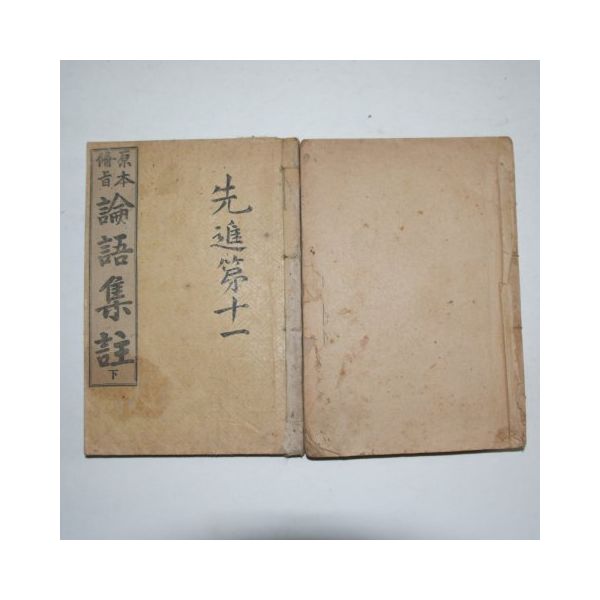 原本備旨
論語集註
下
先進第十一